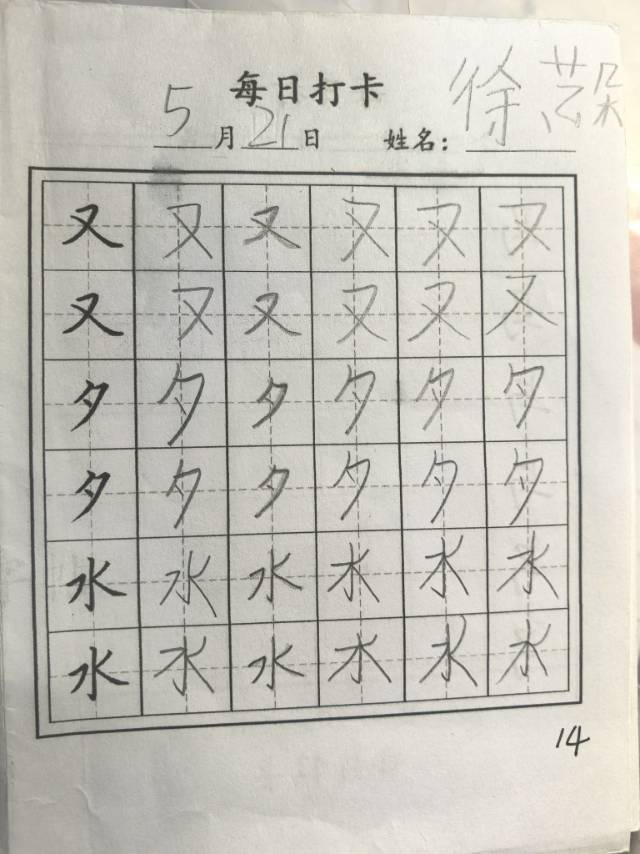 每日打卡
5月21日 姓名：徐
又又又又又又
又又又又又又
夕夕夕夕夕夕
夕夕夕夕夕夕
水水水水水水
水水水水水水
14